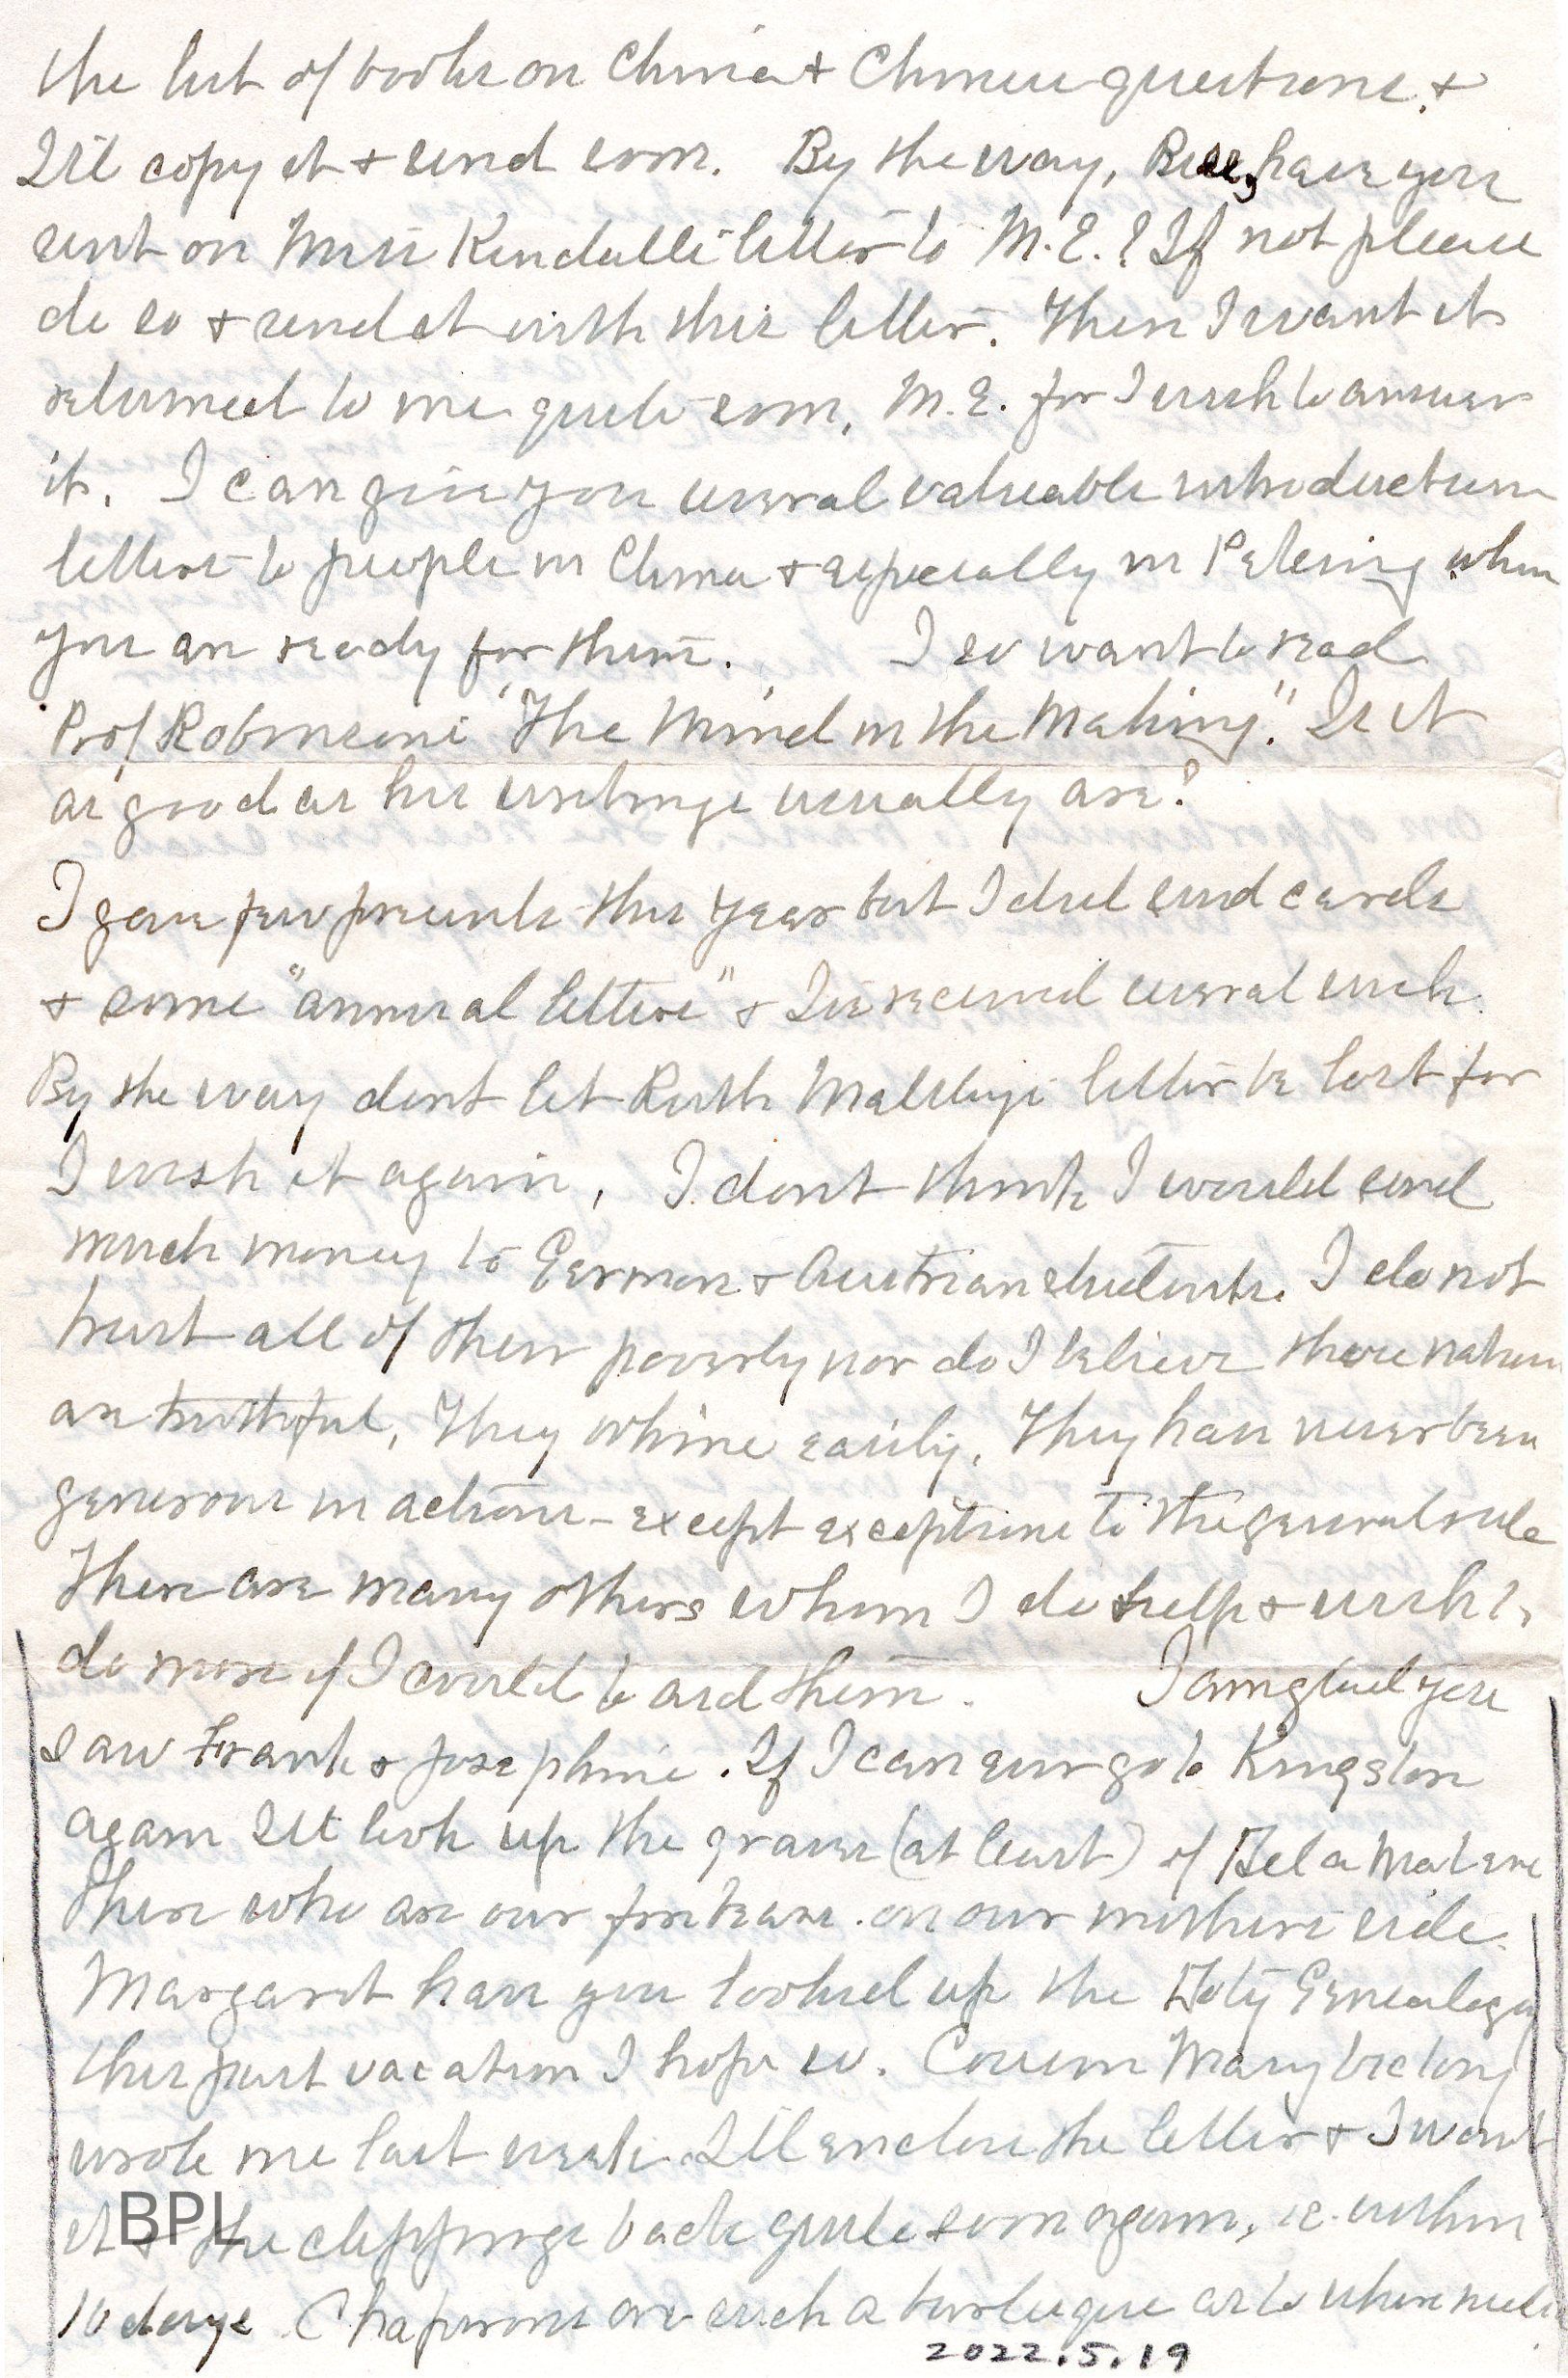 the list of books on China & Chinese questions &
I'll copy it & send soon. By the way, Bee, have you
sent on Miss Kendall's letter to M.E.? If not please
do so & send it with this letter. Then I want it
returned to me quite soon, M.E. for I wish to answer
it. I can give you several valuable introduction
letters to people in China & especially in Peking when
you are ready for them. I so want to read
Prof Robinson's "The Mind in the Making." Is it
as good as his writings usually are?
I gave few presents this year but I did send cards
& some "annual letters" & I've received several such.
By the way dont let Ruth letter be lost for
I wish it again. I dont think I would send
much money to German & Austrian students. I do not
trust all of their poverty nor do I believe these natures
are truthful. They whine easily. They have never been
generous in actions - except exceptions to the general rule
There are many others whom I do help & wish to
do more if I could to aid them. I am glad you
saw Frank & Josephine. If I can ever go to Kingston
again I'll look up the graves (at least) of DelaMaters
there who are our forbears on our mothers side.
Margaret have you looked up the Doty Genealogy
this past vacation I hope so. Cousin Mary
wrote me last week. I'll enclose the letter & I want
it & the clippings back quite soon again, i.e. within
10 days. Chaperons are such a burlesque as to where
BPL
2022.5.19